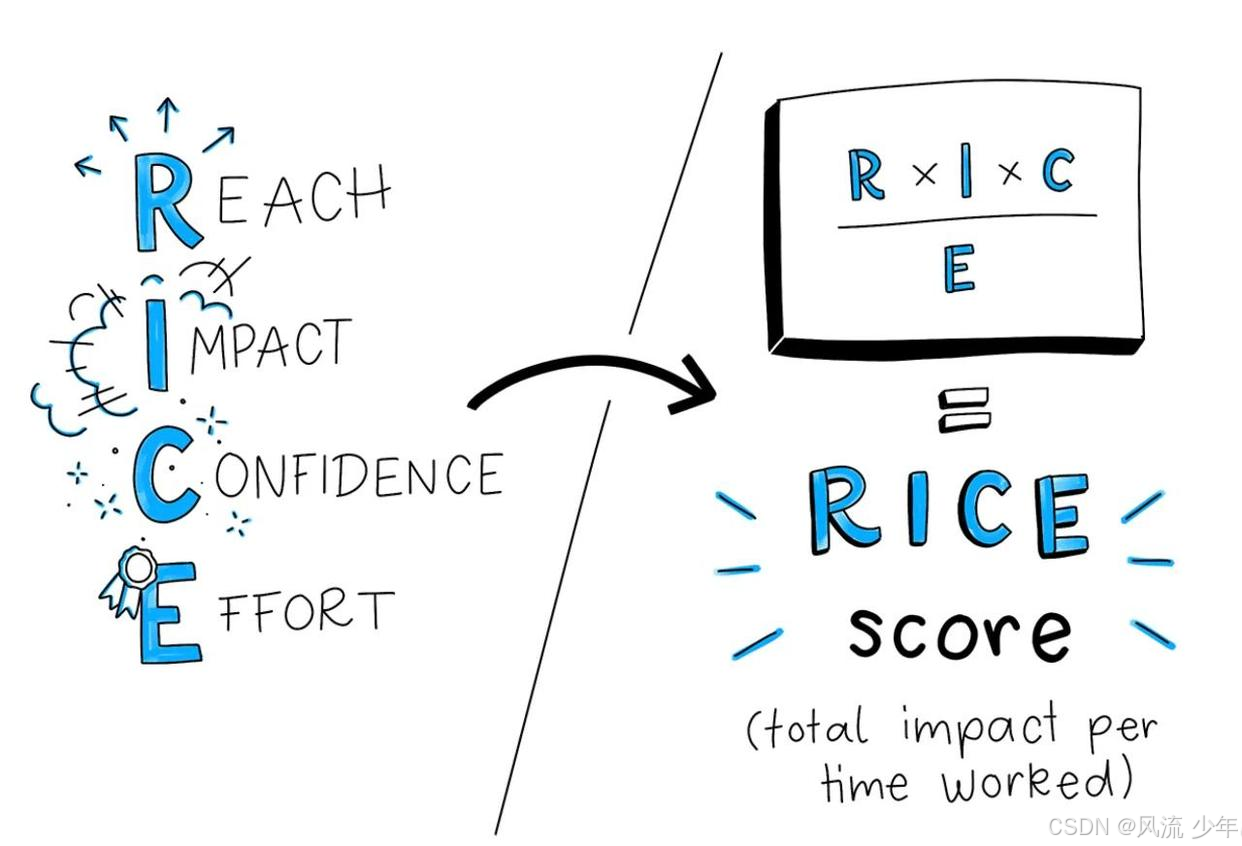 REACH
IMPACT
CONFIDENCE
EFFORT
R × I × C
E
=
RICE
score
(total impact per
time worked)
CSDN @风流 少年